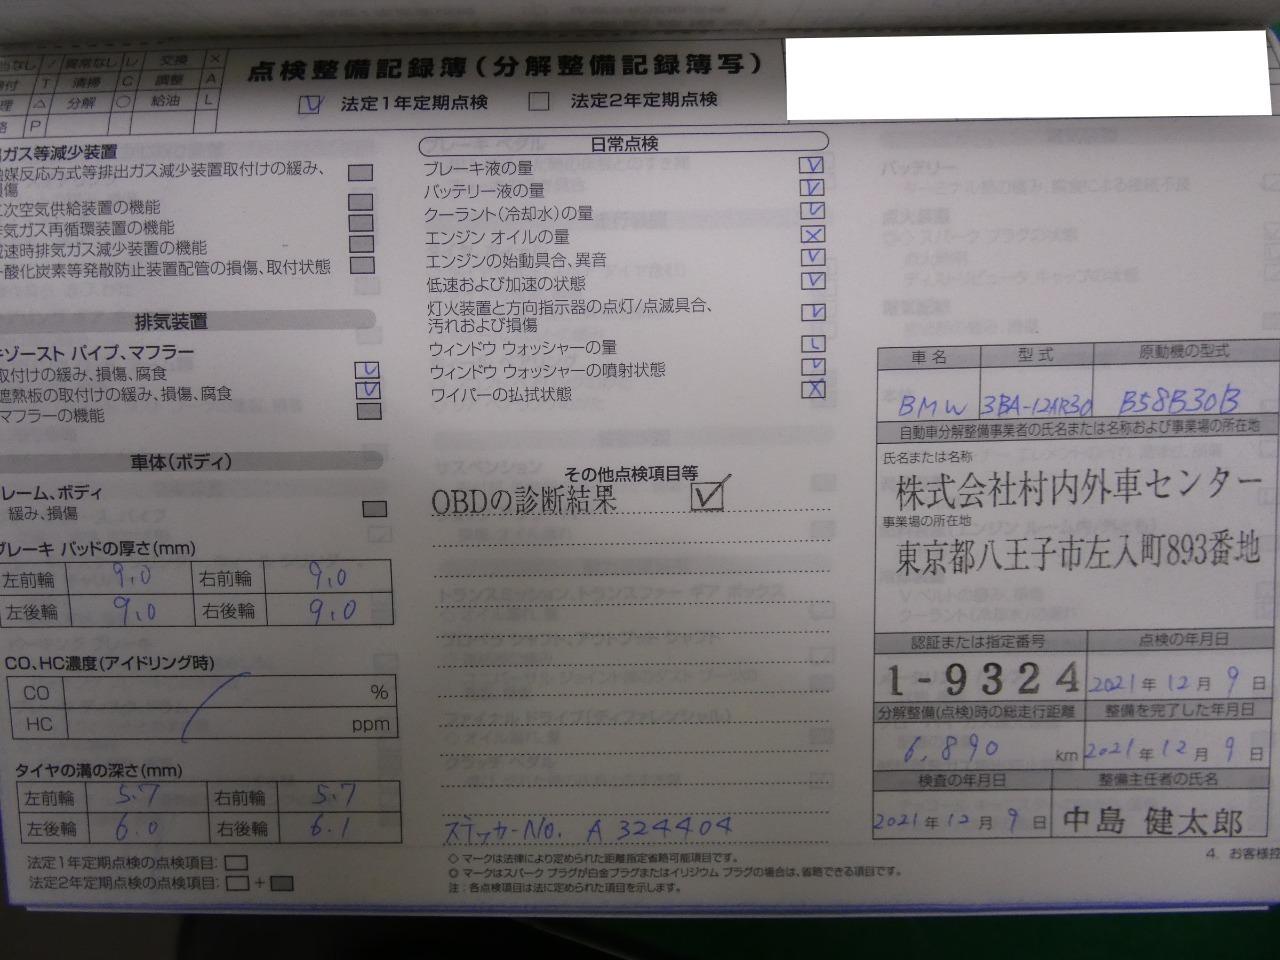 異常なし レ 交換 ×
T 清掃 C 調整 A
△ 分解 ○ 給油 L
P
点検整備記録簿(分解整備記録簿写)
レ 法定1年定期点検 □ 法定2年定期点検
ガス等減少装置
媒反応方式等排出ガス減少装置取付けの緩み、
損傷
二次空気供給装置の機能
排気ガス再循環装置の機能
減速時排気ガス減少装置の機能
一酸化炭素等発散防止装置配管の損傷、取付状態
排気装置
キゾースト パイプ、マフラー
取付けの緩み、損傷、腐食 レ
遮熱板の取付けの緩み、損傷、腐食 レ
マフラーの機能
車体(ボディ)
レーム、ボディ
緩み、損傷
ブレーキ パッドの厚さ(mm)
左前輪 9.0 右前輪 9.0
左後輪 9.0 右後輪 9.0
CO、HC濃度(アイドリング時)
CO %
HC ppm
タイヤの溝の深さ(mm)
左前輪 5.7 右前輪 5.7
左後輪 6.0 右後輪 6.1
法定1年定期点検の点検項目: □
法定2年定期点検の点検項目: □ + ■
日常点検
ブレーキ液の量 レ
バッテリー液の量 レ
クーラント(冷却水)の量 レ
エンジン オイルの量 ×
エンジンの始動具合、異音 レ
低速および加速の状態 レ
灯火装置と方向指示器の点灯/点滅具合、
汚れおよび損傷 レ
ウィンドウ ウォッシャーの量 L
ウィンドウ ウォッシャーの噴射状態 レ
ワイパーの払拭状態 ×
その他点検項目等
OBDの診断結果 ☑
ステッカーNo. A324404
◇ マークは法律により定められた距離指定省略可能項目です。
◎ マークはスパーク プラグが白金プラグまたはイリジウム プラグの場合は、省略できる項目です。
注:各点検項目は法に定められた項目を示します。
車名 型式 原動機の型式
BMW 3BA-12AR30 B58B30B
自動車分解整備事業者の氏名または名称および事業場の所在地
氏名または名称
株式会社村内外車センター
事業場の所在地
東京都八王子市左入町893番地
認証または指定番号 点検の年月日
1-9324 2021年12月9日
分解整備(点検)時の総走行距離 整備を完了した年月日
6,890 km 2021年12月9日
検査の年月日 整備主任者の氏名
2021年12月9日 中島 健太郎
4. お客様控